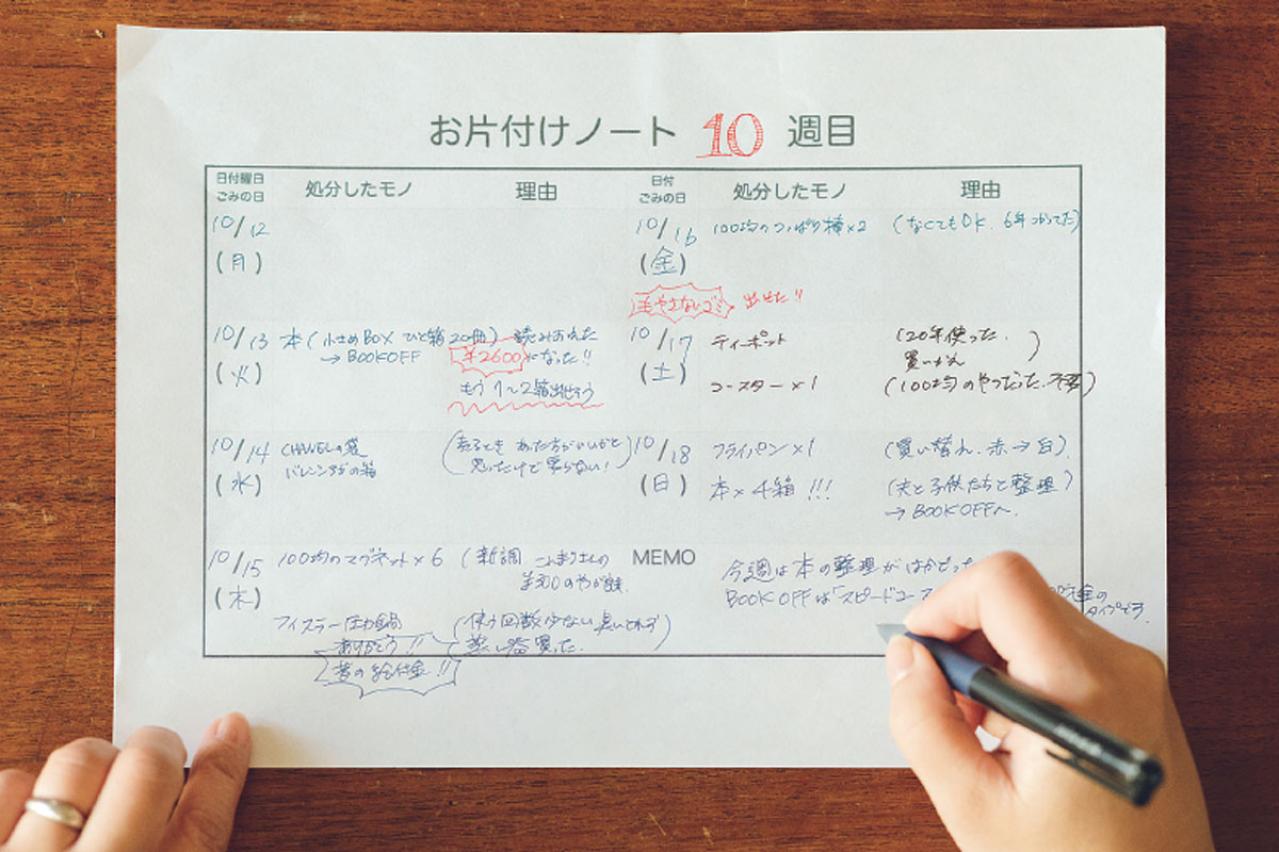 お片付けノート 10 週目
日付曜日
ごみの日
処分したモノ
理由
日付
ごみの日
処分したモノ
理由
10/12
(月)
10/13
(火)
本(小さめBOX ひと箱20冊)
→BOOKOFF
読みおわった
¥2600になった!!
もう1〜2箱出せそう
10/14
(水)
CHANELの袋
バレンシアガの箱
(売るとき あった方がいいかと
思ったけで 売らない!)
10/15
(木)
100均のマグネット×6
(新調
¥300のやつ
フィスラー圧力鍋
ありがとう!!
昔の給付金!!
(使う回数少ない
蒸し器買った.
10/16
(金)
100均のつっぱり棒×2
(なくてもOK. 6年つかってた)
燃やさないゴミ 出せた!!
10/17
(土)
ティーポット
(20年使った.
買いかえ )
コースター×1
(100均のやつだった.不要)
10/18
(日)
フライパン×1
(買い替え.赤→白).
本×4箱!!!
(夫と子供たちと整理)
→BOOKOFFへ.
MEMO
今週は本の整理がはかどった
BOOKOFFは「スピードコー
タイプです.